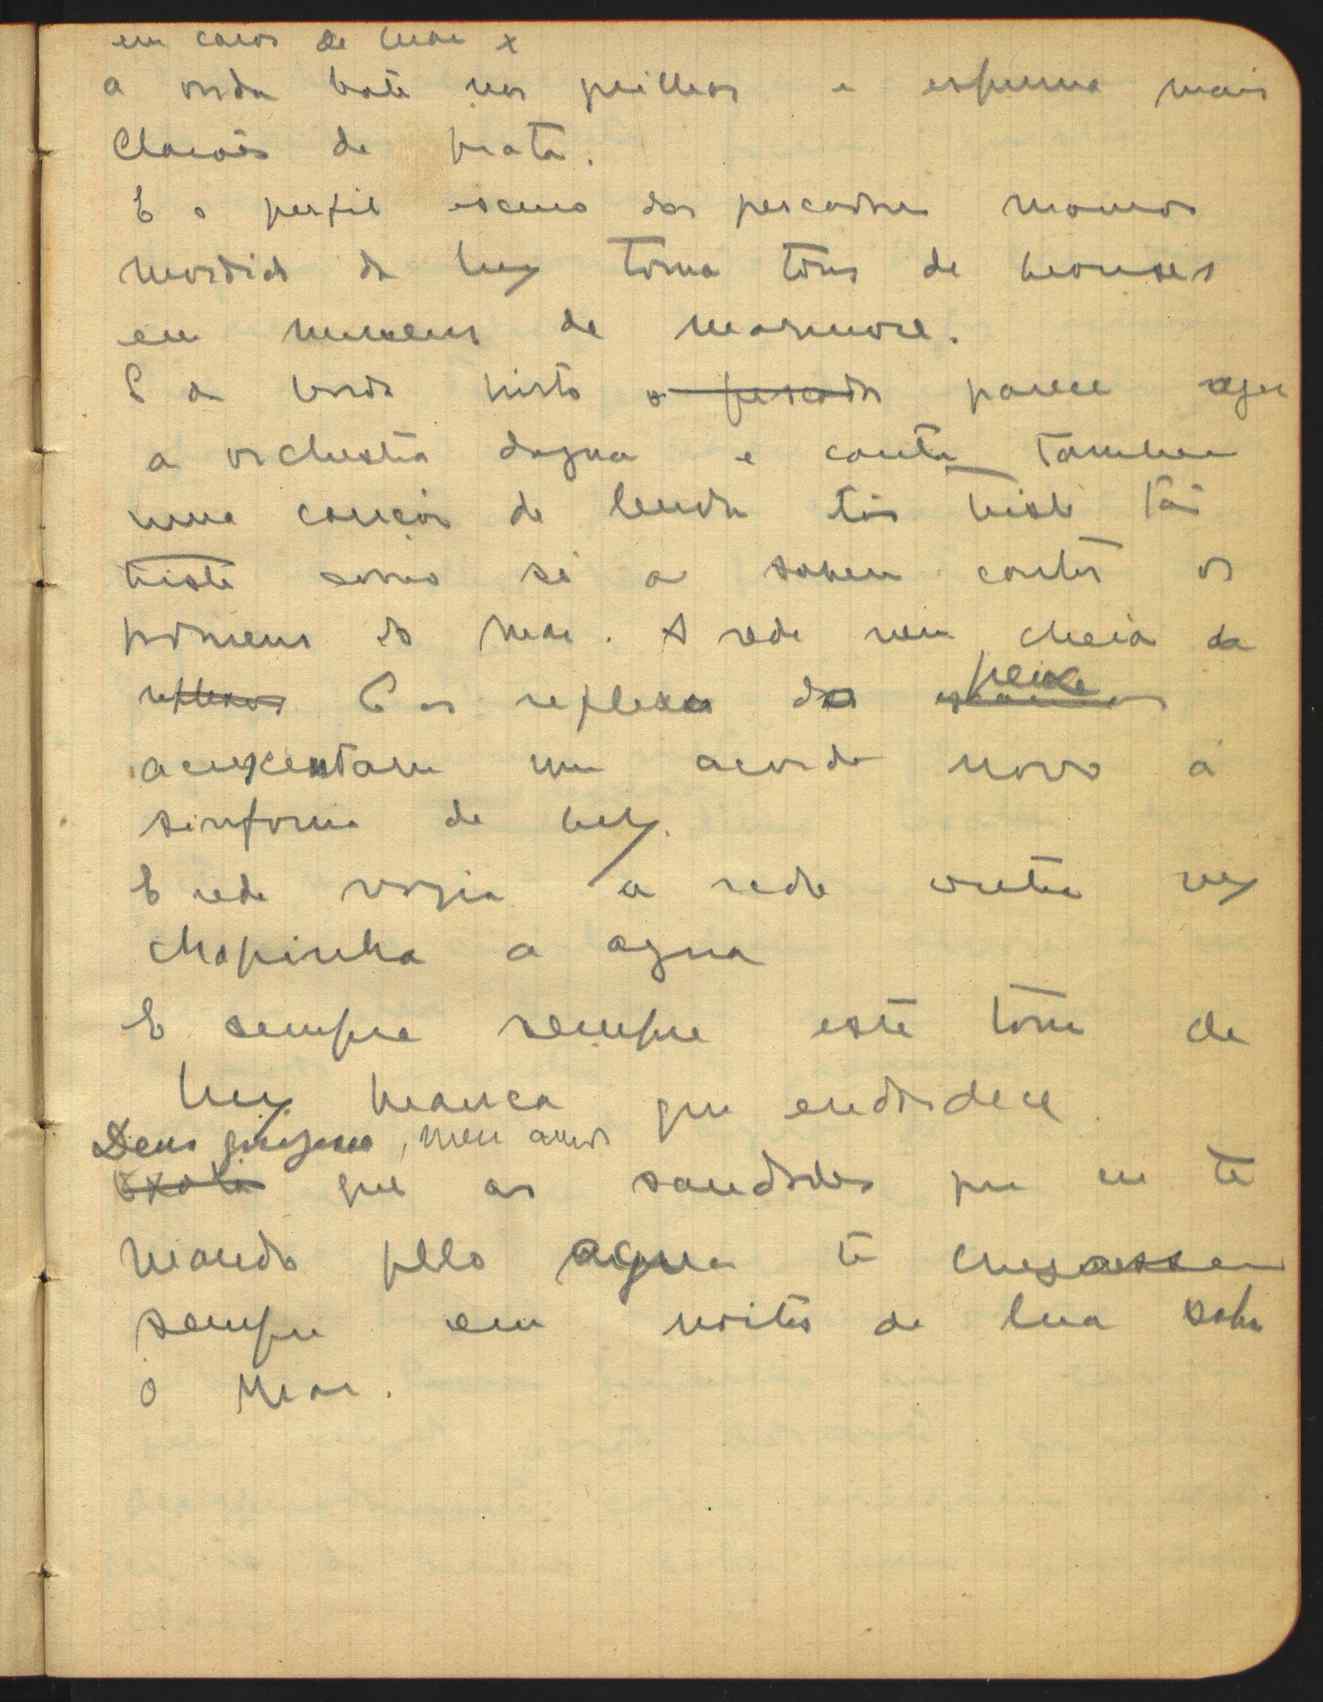 em caros de luar x
a onda bate nos joelhos e espuma mais
clarões de prata.
E o perfil escuro dos pescadores morenos
mordido da luz toma tons de bronzes
em museus de marmore.
E a borda perto o pescador parece reger
a orchestra dagua e canta tambem
uma canção de lenda tão triste tão
triste como só a sabem contar os
homens do mar. A rede vem cheia da
reflexos E os reflexos do peixe
acrescentam um acorde novo á
sinfonia de luz.
E rede vazia a rede outra vez
chapinha a agua
E sempre sempre este tom de
luz branca que endoidece.
Deus quizesse, meu amor
que as saudades que eu te
mando pela agua te chegassem
sempre em noites de lua sobre
o Mar.